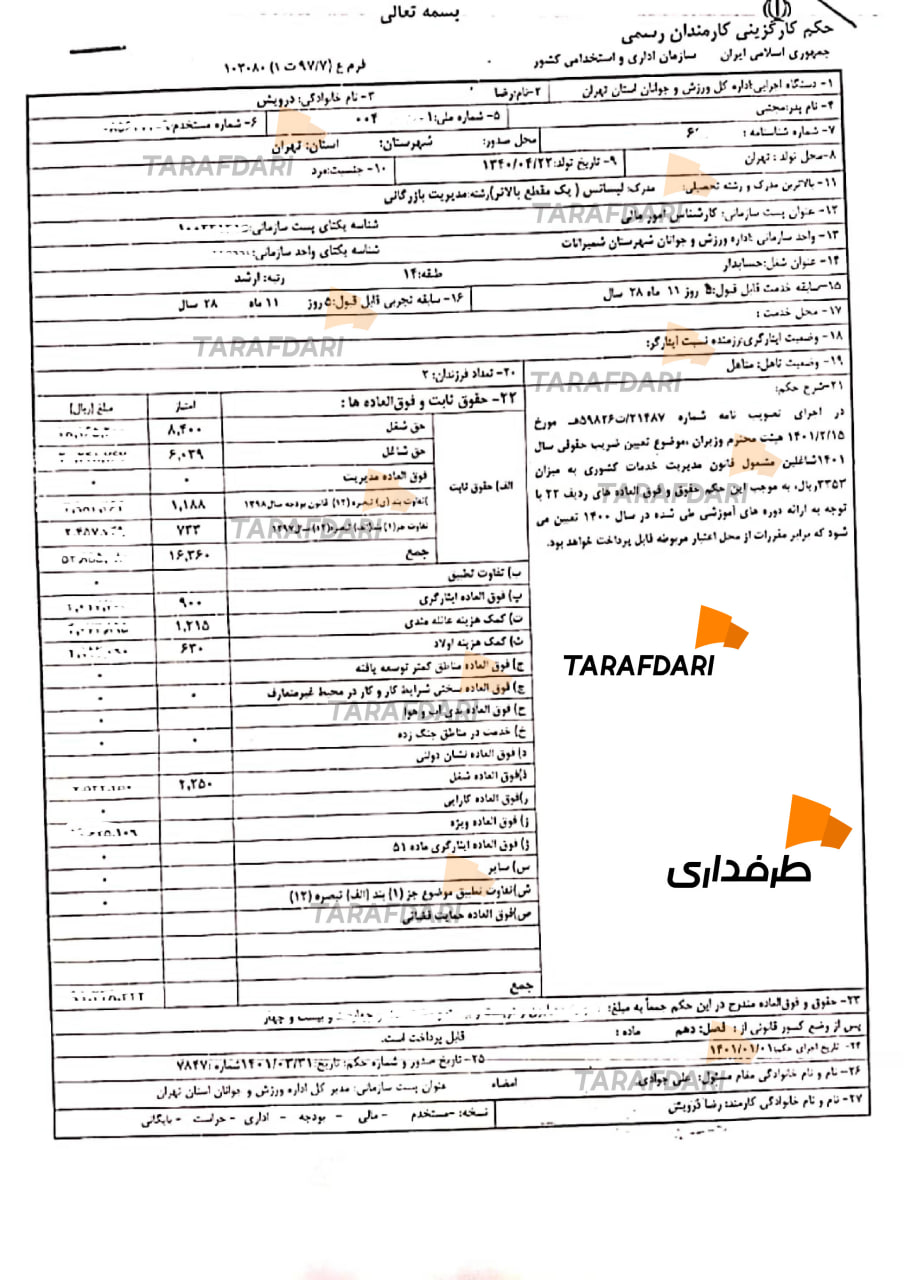 بسمه تعالی
حکم کارگزینی کارمندان رسمی
جمهوری اسلامی ایران سازمان اداری و استخدامی کشور
فرم ع (۹۷/۷ ت ۱) ۱۰۳۰۸۰
۱- دستگاه اجرایی:اداره کل ورزش و جوانان استان تهران
۲-نام:رضا
۳- نام خانوادگی: درویش
۴- نام پدر:مجتبی
۵- شماره ملی:۱ ۰۰۴
۶- شماره مستخدم:
۷- شماره شناسنامه : ۶
محل صدور: شهرستان: استان: تهران
۸-محل تولد : تهران
۹- تاریخ تولد:۱۳۴۰/۰۴/۲۲
۱۰- جنسیت:مرد
۱۱- بالاترین مدرک و رشته تحصیلی: مدرک: لیسانس ( یک مقطع بالاتر)رشته:مدیریت بازرگانی
۱۲- عنوان پست سازمانی: کارشناس امور مالی
شناسه یکتای پست سازمانی:
۱۳- واحد سازمانی :اداره ورزش و جوانان شهرستان شمیرانات
شناسه یکتای واحد سازمانی:
۱۴- عنوان شغل:حسابدار
طبقه:۱۴
رتبه: ارشد
۱۵-سابقه خدمت قابل قبول:۵ روز ۱۱ ماه ۲۸ سال
۱۶- سابقه تجربی قابل قبول:۵ روز ۱۱ ماه ۲۸ سال
۱۷- محل خدمت :
۱۸- وضعیت ایثارگری:رزمنده نسبت ایثارگر:
۱۹- وضعیت تاهل: متاهل
۲۰- تعداد فرزندان: ۲
۲۱-شرح حکم:
در اجرای تصویب نامه شماره ۲۱۴۸۷/ت۵۹۸۲۶هـ مورخ
۱۴۰۱/۲/۱۵ هیئت محترم وزیران ،موضوع تعیین ضریب حقوقی سال
۱۴۰۱شاغلین مشمول قانون مدیریت خدمات کشوری به میزان
۳۳۵۳ریال، به موجب این حکم حقوق و فوق العاده های ردیف ۲۲ با
توجه به ارائه دوره های آموزشی طی شده در سال ۱۴۰۰ تعیین می
شود که برابر مقررات از محل اعتبار مربوطه قابل پرداخت خواهد بود.
۲۲- حقوق ثابت و فوق‌العاده ها :
امتیاز
مبلغ (ریال)
الف) حقوق ثابت
حق شغل ۸,۴۰۰
حق شاغل ۶,۰۳۹
فوق العاده مدیریت ۰ ۰
تفاوت بند (ی) تبصره (۱۲) قانون بودجه سال۱۳۹۸ ۱,۱۸۸
تفاوت جز(۱) بند(الف) تبصره(۱۲) سال۱۳۹۷ ۷۳۳
جمع ۱۶,۳۶۰
ب) تفاوت تطبیق ۰
پ) فوق العاده ایثارگری ۹۰۰
ت) کمک هزینه عائله مندی ۱,۲۱۵
ث) کمک هزینه اولاد ۶۳۰
ج) فوق العاده مناطق کمتر توسعه یافته ۰
چ) فوق العاده سختی شرایط کار و کار در محیط غیرمتعارف ۰ ۰
ح) فوق العاده بدی آب و هوا ۰
خ) خدمت در مناطق جنگ زده ۰ ۰
د) فوق العاده نشان دولتی
ذ)فوق العاده شغل ۲,۲۵۰
ر)فوق العاده کارایی ۰
ز) فوق العاده ویژه
ژ) فوق العاده ایثارگری ماده ۵۱ ۰
س) سایر ۰
ش)تفاوت تطبیق موضوع جز (۱) بند (الف) تبصره (۱۲) ۰
ص)فوق العاده حمایت قضائی
جمع
۲۳- حقوق و فوق‌العاده مندرج در این حکم جمعاً به مبلغ: و بیست و چهار
پس از وضع کسور قانونی از : فصل: دهم ماده : قابل پرداخت است.
۲۴- تاریخ اجرای حکم:۱۴۰۱/۰۱/۰۱
۲۵- تاریخ صدور و شماره حکم: تاریخ:۱۴۰۱/۰۳/۳۱شماره:۷۸۴۷
۲۶- نام و نام خانوادگی مقام مسئول: علی جوادی
عنوان پست سازمانی: مدیر کل اداره ورزش و جوانان استان تهران امضاء
۲۷- نام و نام خانوادگی کارمند: رضا درویش
نسخه: -مستخدم - مالی - بودجه - اداری - حراست - بایگانی
TARAFDARI
طرفداری